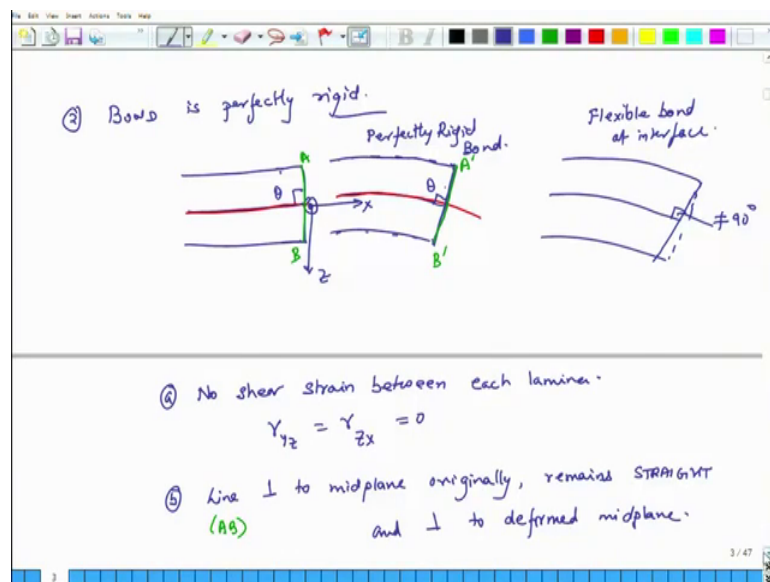 File Edit View Insert Actions Tools Help
B I
② BOND is perfectly rigid.
Perfectly Rigid
Bond.
Flexible bond
at interface.
A
θ
x
B
z
A'
θ
B'
≠ 90°
ⓐ No shear strain between each lamina.
γyz = γzx = 0
ⓑ Line ⊥ to midplane originally, remains STRAIGHT
(AB) and ⊥ to deformed midplane.
3 / 47
3